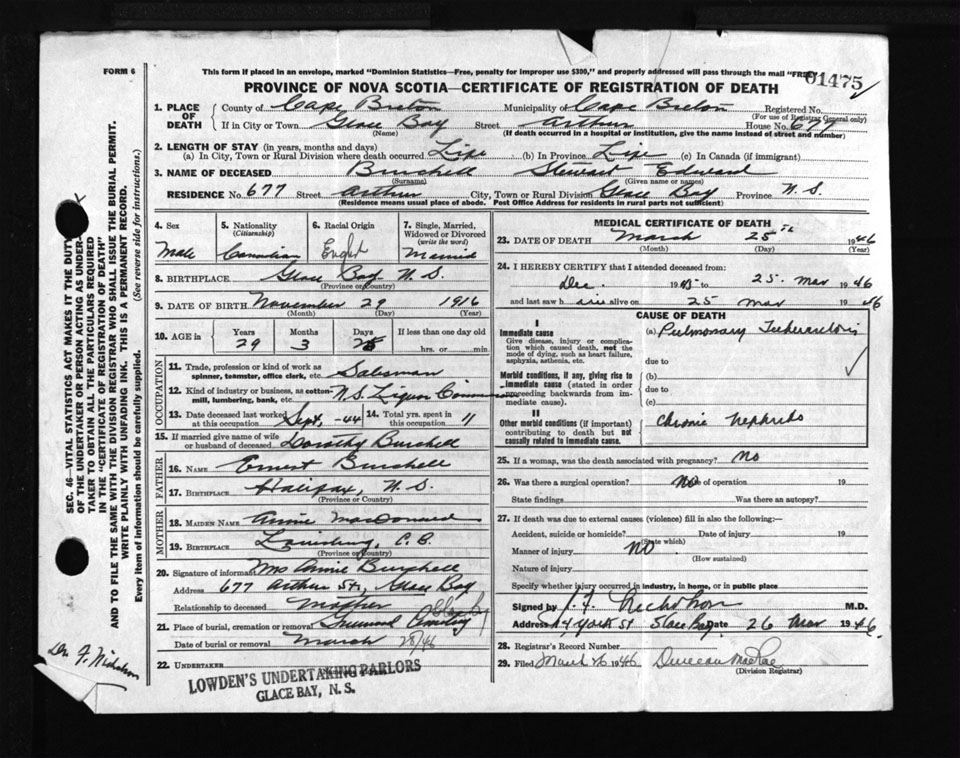 FORM 6
This form if placed in an envelope, marked "Dominion Statistics—Free, penalty for improper use $300," and properly addressed will pass through the mail "FREE"
01475
PROVINCE OF NOVA SCOTIA—CERTIFICATE OF REGISTRATION OF DEATH
1. PLACE OF DEATH County of Cape Breton Municipality of Cape Breton Registered No.
(For use of Registrar General only)
If in City or Town Glace Bay Street Arthur House No. 677
(Name) (If death occurred in a hospital or institution, give the name instead of street and number)
2. LENGTH OF STAY (in years, months and days)
(a) In City, Town or Rural Division where death occurred Life (b) In Province Life (c) In Canada (if immigrant)
3. NAME OF DECEASED Burchell Stewart Edward
(Surname) (Given name or names)
RESIDENCE No. 677 Street Arthur City, Town or Rural Division Glace Bay Province N.S.
(Residence means usual place of abode. Post Office Address for residents in rural parts not sufficient)
4. Sex 5. Nationality (Citizenship) 6. Racial Origin 7. Single, Married, Widowed or Divorced (write the word)
Male Canadian English Married
8. BIRTHPLACE Glace Bay N.S.
(Province or Country)
9. DATE OF BIRTH November 29 1916
(Month) (Day) (Year)
10. AGE in Years Months Days If less than one day old
29 3 hrs. or min.
OCCUPATION
11. Trade, profession or kind of work as spinner, teamster, office clerk, etc. Salesman
12. Kind of industry or business, as cotton-mill, lumbering, bank, etc. N.S. Liquor Commission
13. Date deceased last worked at this occupation Sept, -44 14. Total yrs. spent in this occupation 11
15. If married give name of wife or husband of deceased Dorothy Burchell
FATHER
16. NAME Ernest Burchell
17. BIRTHPLACE Halifax, N.S.
(Province or Country)
MOTHER
18. MAIDEN NAME Annie MacDonald
19. BIRTHPLACE Louisburg, C.B.
(Province or Country)
20. Signature of informant Mrs Annie Burchell
Address 677 Arthur St., Glace Bay
Relationship to deceased Mother
21. Place of burial, cremation or removal Greenwood Cemetery Glace Bay
Date of burial or removal March 28/46
22. UNDERTAKER
LOWDEN'S UNDERTAKING PARLORS
GLACE BAY, N. S.
MEDICAL CERTIFICATE OF DEATH
23. DATE OF DEATH March 25th 1946
(Month) (Day) (Year)
24. I HEREBY CERTIFY that I attended deceased from:
Dec. 1945 to 25 Mar 1946
and last saw h alive on 25 Mar 1946
CAUSE OF DEATH
I
Immediate cause (a) Pulmonary Tuberculosis
Give disease, injury or complication which caused death, not the mode of dying, such as heart failure, asphyxia, asthenia, etc.
due to
Morbid conditions, if any, giving rise to immediate cause (stated in order proceeding backwards from immediate cause).
(b)
due to
(c)
II
Other morbid conditions (if important) contributing to death but not causally related to immediate cause.
Chronic Nephritis
25. If a woman, was the death associated with pregnancy? No
26. Was there a surgical operation? No Date of operation 19
State findings Was there an autopsy?
27. If death was due to external causes (violence) fill in also the following:—
Accident, suicide or homicide? Date of injury 19
(State which)
Manner of injury No
(How sustained)
Nature of injury
Specify whether injury occurred in industry, in home, or in public place
Signed by Nicholson M.D.
Address York St Glace Bay Date 26 Mar 1946.
28. Registrar's Record Number
29. Filed March 26 1946 Duncan MacRae
(Division Registrar)
SEC. 46—VITAL STATISTICS ACT MAKES IT THE DUTY
OF THE UNDERTAKER OR PERSON ACTING AS UNDER-
TAKER TO OBTAIN ALL THE PARTICULARS REQUIRED
IN THE "CERTIFICATE OF REGISTRATION OF DEATH"
AND TO FILE THE SAME WITH THE DIVISION REGISTRAR WHO SHALL ISSUE THE BURIAL PERMIT.
WRITE PLAINLY WITH UNFADING INK. THIS IS A PERMANENT RECORD.
Every item of information should be carefully supplied. (See reverse side for instructions.)
Dr. F. Nicholson